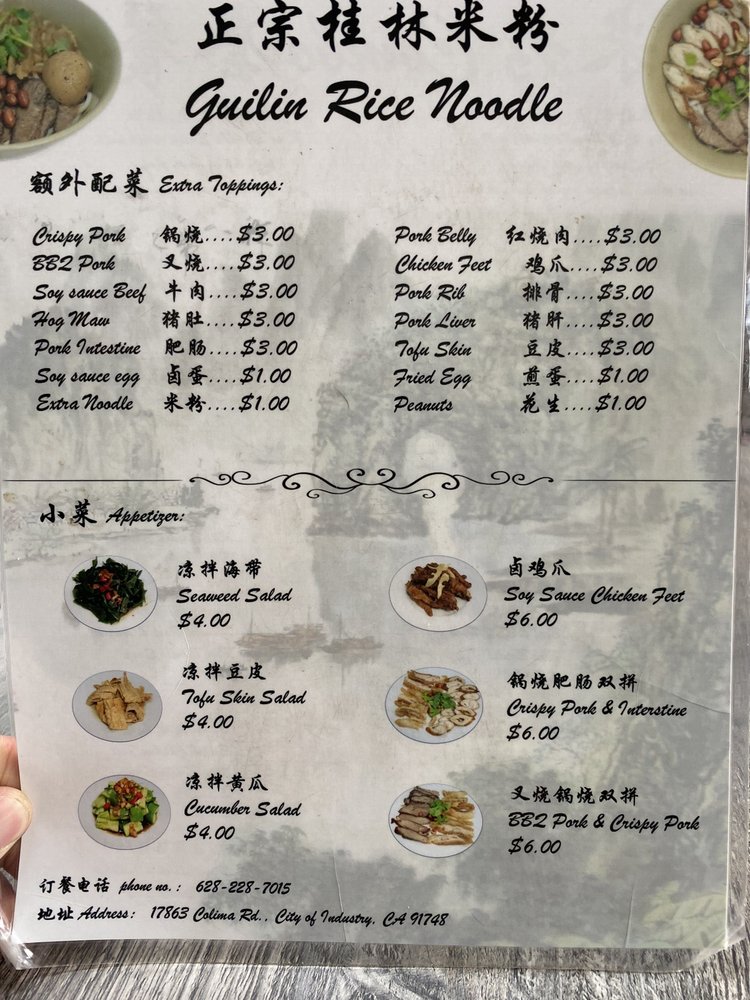 正宗桂林米粉
Guilin Rice Noodle
额外配菜 Extra Toppings:
Crispy Pork 锅烧....$3.00
BBQ Pork 叉烧....$3.00
Soy sauce Beef 牛肉....$3.00
Hog Maw 猪肚....$3.00
Pork Intestine 肥肠....$3.00
Soy sauce egg 卤蛋....$1.00
Extra Noodle 米粉....$1.00
Pork Belly 红烧肉....$3.00
Chicken Feet 鸡爪....$3.00
Pork Rib 排骨....$3.00
Pork Liver 猪肝....$3.00
Tofu Skin 豆皮....$3.00
Fried Egg 煎蛋....$1.00
Peanuts 花生....$1.00
小菜 Appetizer:
凉拌海带
Seaweed Salad
$4.00
凉拌豆皮
Tofu Skin Salad
$4.00
凉拌黄瓜
Cucumber Salad
$4.00
卤鸡爪
Soy Sauce Chicken Feet
$6.00
锅烧肥肠双拼
Crispy Pork & Interstine
$6.00
叉烧锅烧双拼
BBQ Pork & Crispy Pork
$6.00
订餐电话 phone no.: 628-228-7015
地址 Address: 17863 Colima Rd., City of Industry, CA 91748